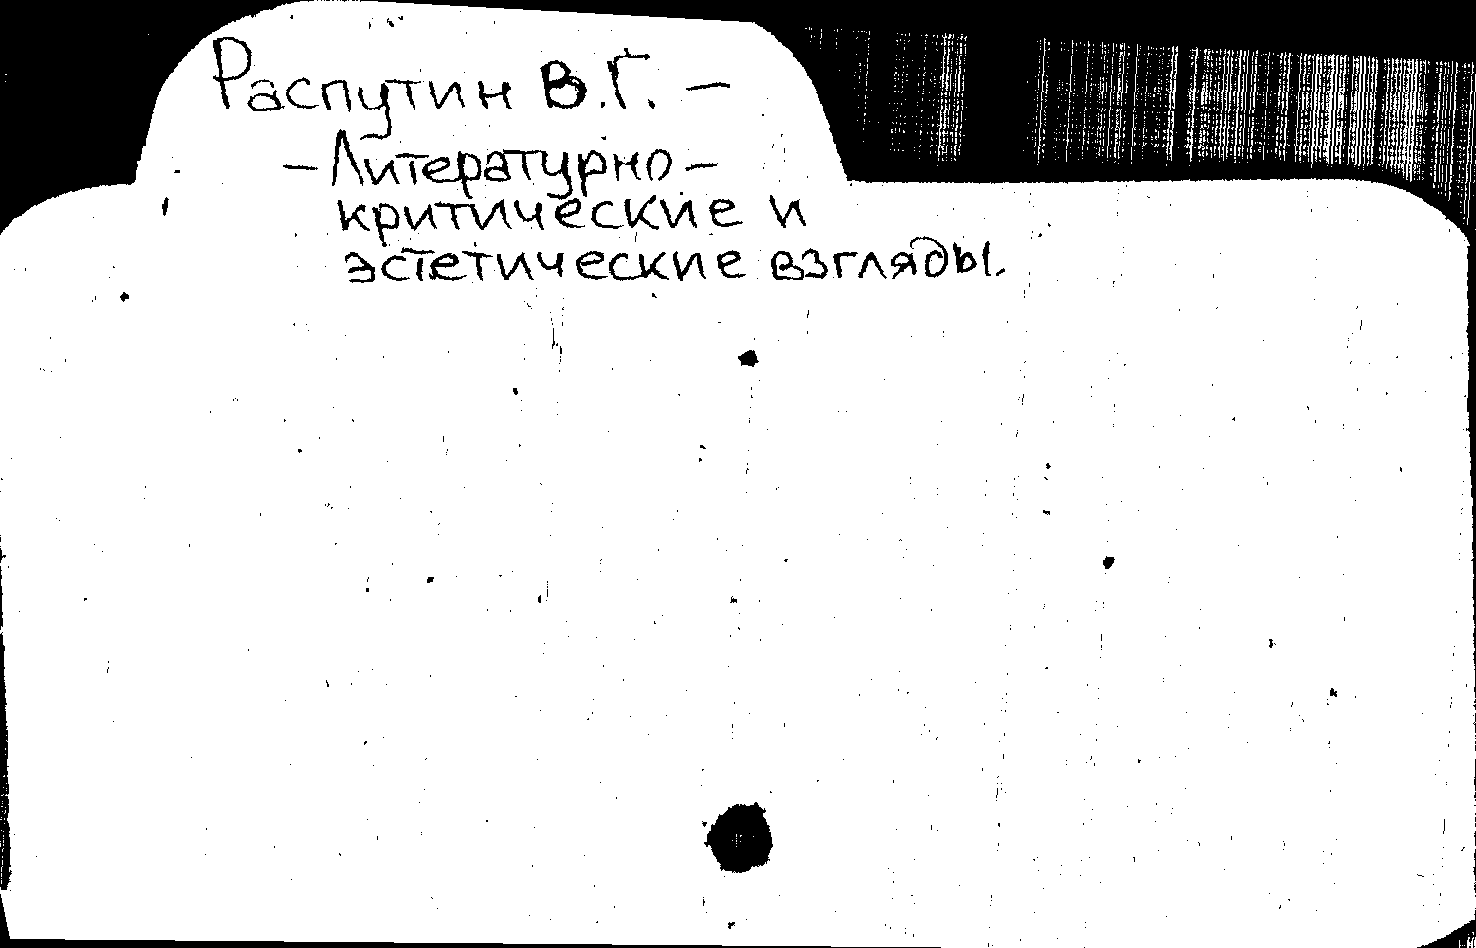 Распутин В.Г. —
— Литературно —
критические и
эстетические взгляды.